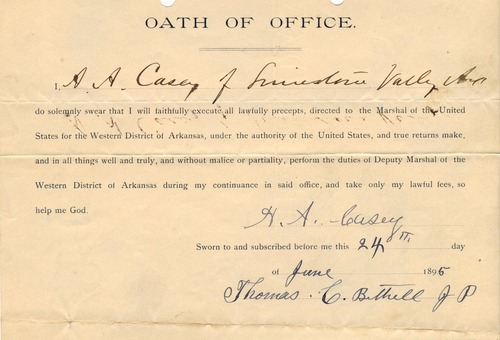 OATH OF OFFICE.
I, A. A. Casey of Limestone Valley Ark
do solemnly swear that I will faithfully execute all lawfully precepts, directed to the Marshal of the United
States for the Western District of Arkansas, under the authority of the United States, and true returns make,
and in all things well and truly, and without malice or partiality, perform the duties of Deputy Marshal of the
Western District of Arkansas during my continuance in said office, and take only my lawful fees, so
help me God.
A. A. Casey
Sworn to and subscribed before me this 24th day
of June 1895
Thomas C. Bethell J P